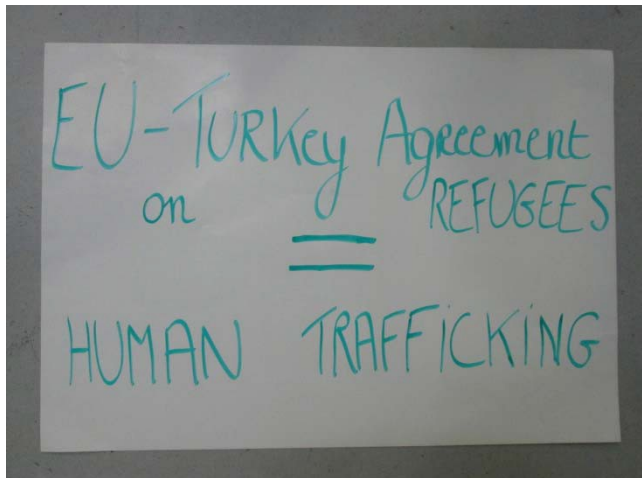 EU-TURKey Agreement
on REFUGEES
=
HUMAN TRAFFiCKiNG